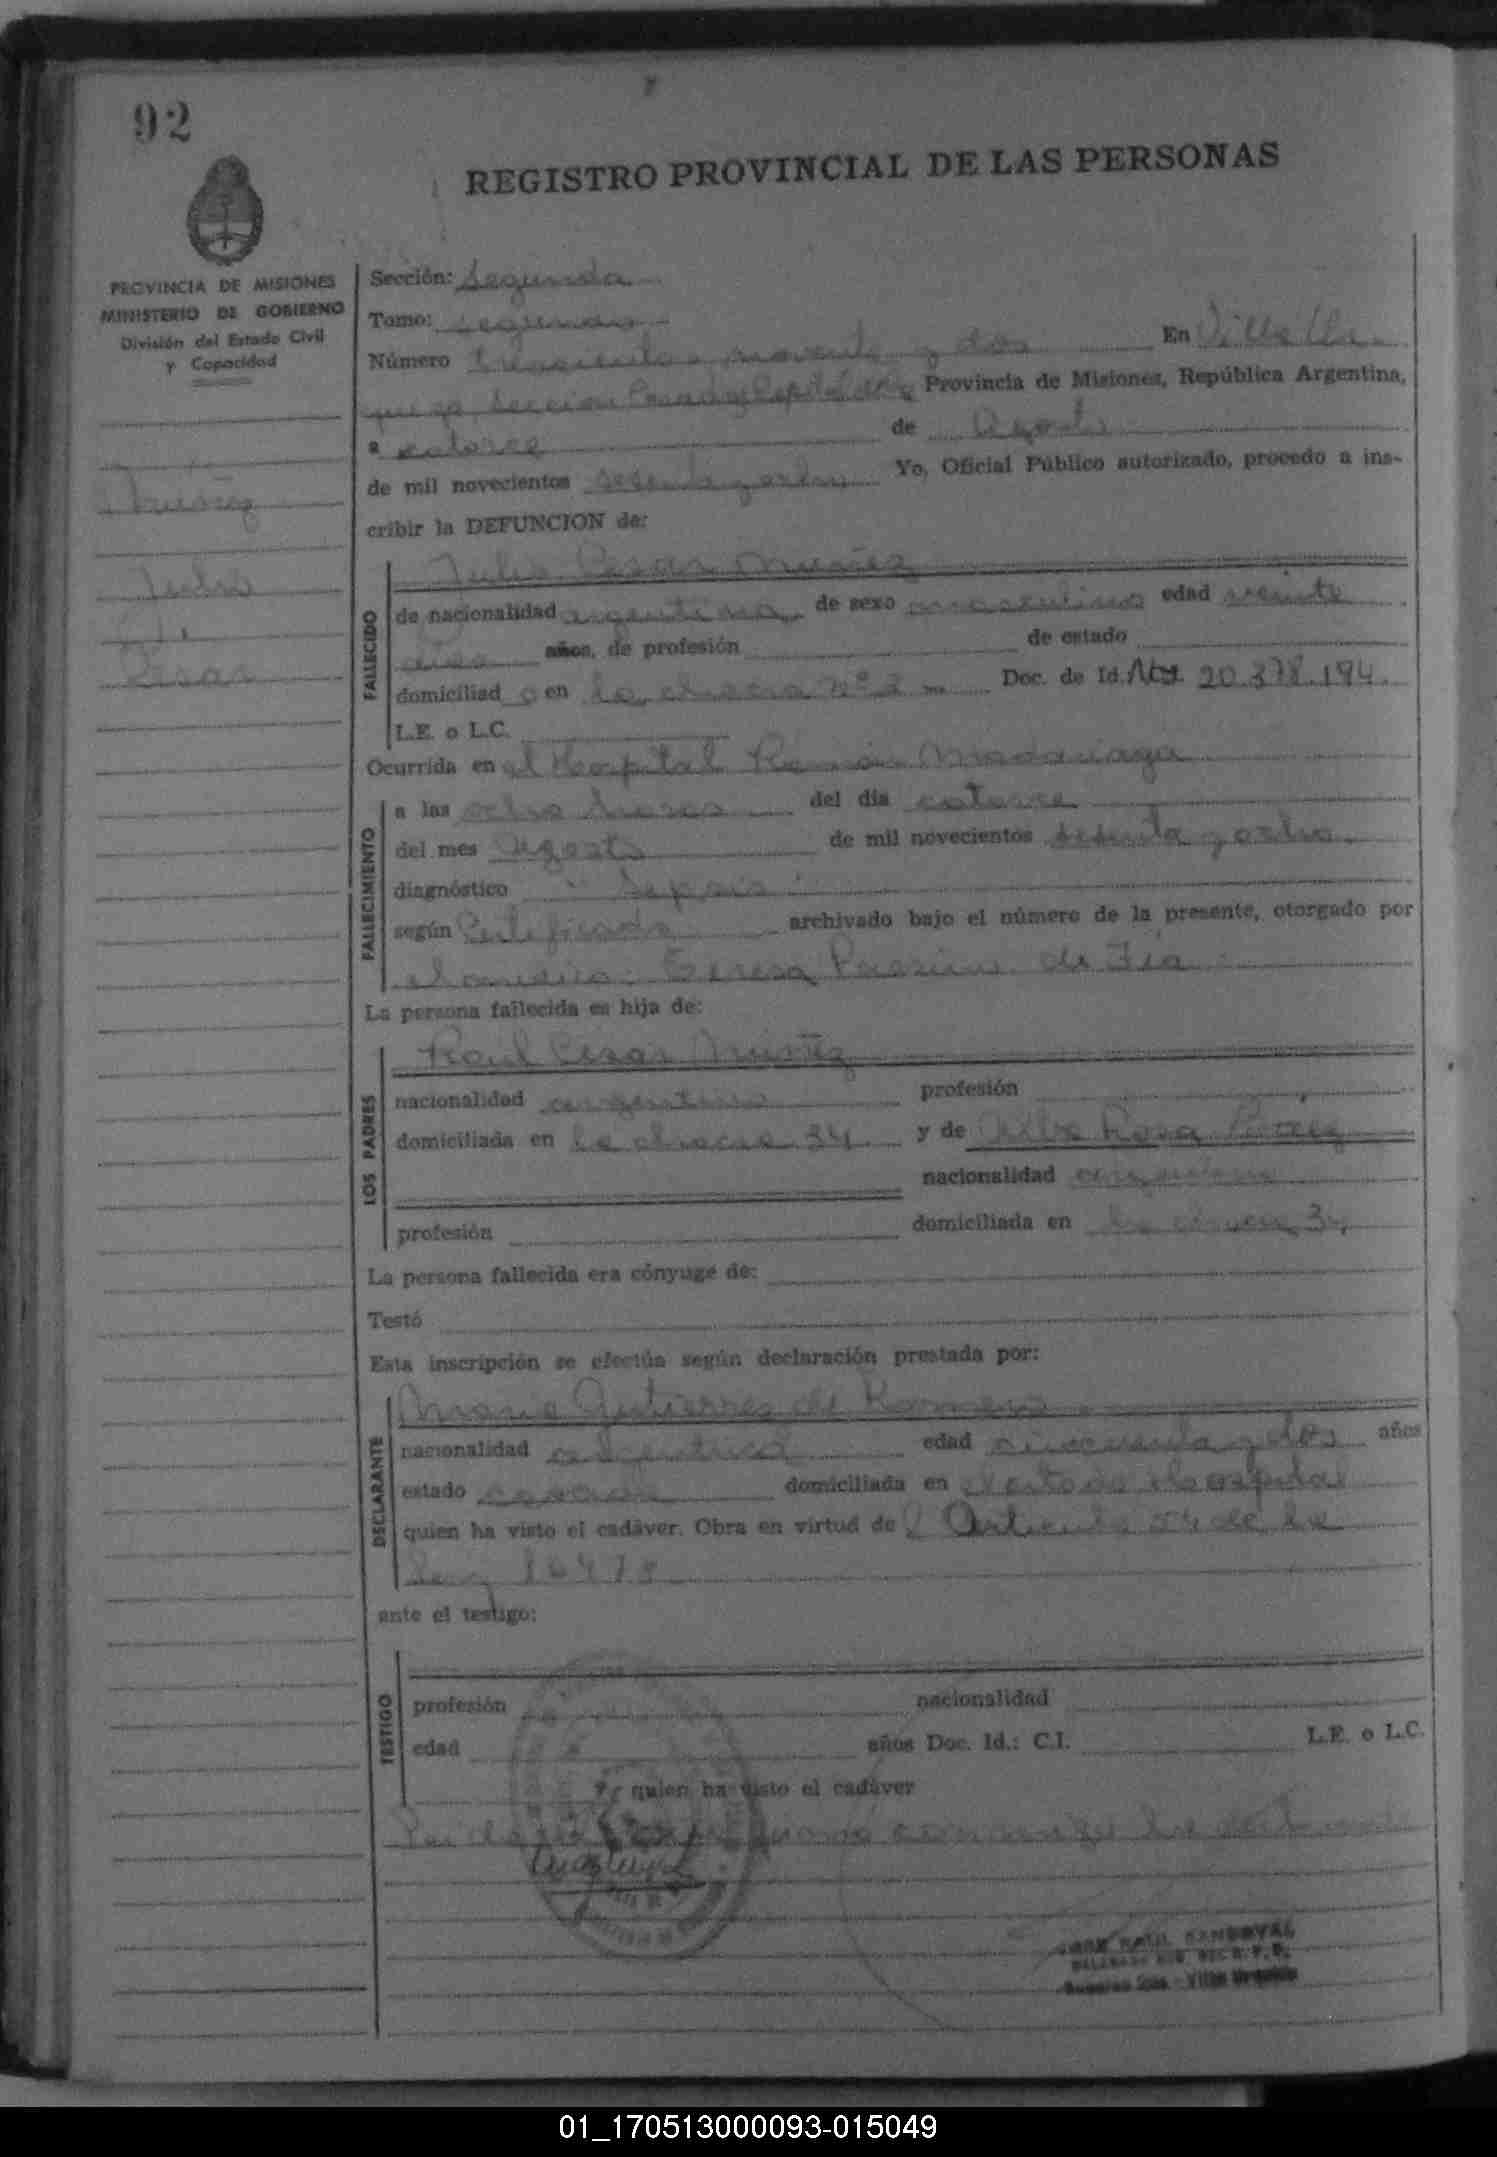 92
REGISTRO PROVINCIAL DE LAS PERSONAS
PROVINCIA DE MISIONES
MINISTERIO DE GOBIERNO
División del Estado Civil
y Capacidad
Nuñez
Julio
Cesar
Sección: Segunda
Tomo: segundo
Número trescientos noventa y dos En Villa Ur
quiza, Seccion Provincia de Misiones, República Argentina,
a catorce de Agosto
de mil novecientos setenta y ocho Yo, Oficial Público autorizado, procedo a ins-
cribir la DEFUNCION de:
FALLECIDO
Julio Cesar Nuñez
de nacionalidad argentina de sexo masculino edad veinte
dias años, de profesión de estado
domiciliad o en la chacra Nº Doc. de Id. 20.378.194
L.E. o L.C.
Ocurrida en el Hospital Ramón Madariaga
FALLECIMIENTO
a las ocho horas del día catorce
del mes Agosto de mil novecientos setenta y ocho
diagnóstico "Sepsis"
según Certificado archivado bajo el número de la presente, otorgado por
el médico: Teresa de
La persona fallecida es hija de:
LOS PADRES
Raul Cesar Nuñez
nacionalidad argentino profesión
domiciliada en la chacra 34 y de Alba Rosa
nacionalidad argentina
profesión domiciliada en la chacra 34
La persona fallecida era cónyuge de:
Testó
Esta inscripción se efectúa según declaración prestada por:
DECLARANTE
Maria Gutierres de Romero
nacionalidad argentina edad cincuenta y dos años
estado casada domiciliada en el citado Hospital
quien ha visto el cadáver. Obra en virtud del Articulo 54 de la
Ley
ante el testigo:
TESTIGO
profesión nacionalidad
edad años Doc. Id.: C.I. L.E. o L.C.
quien ha visto el cadáver
Leida conmigo la declarante
JOSE RAUL SANDOVAL